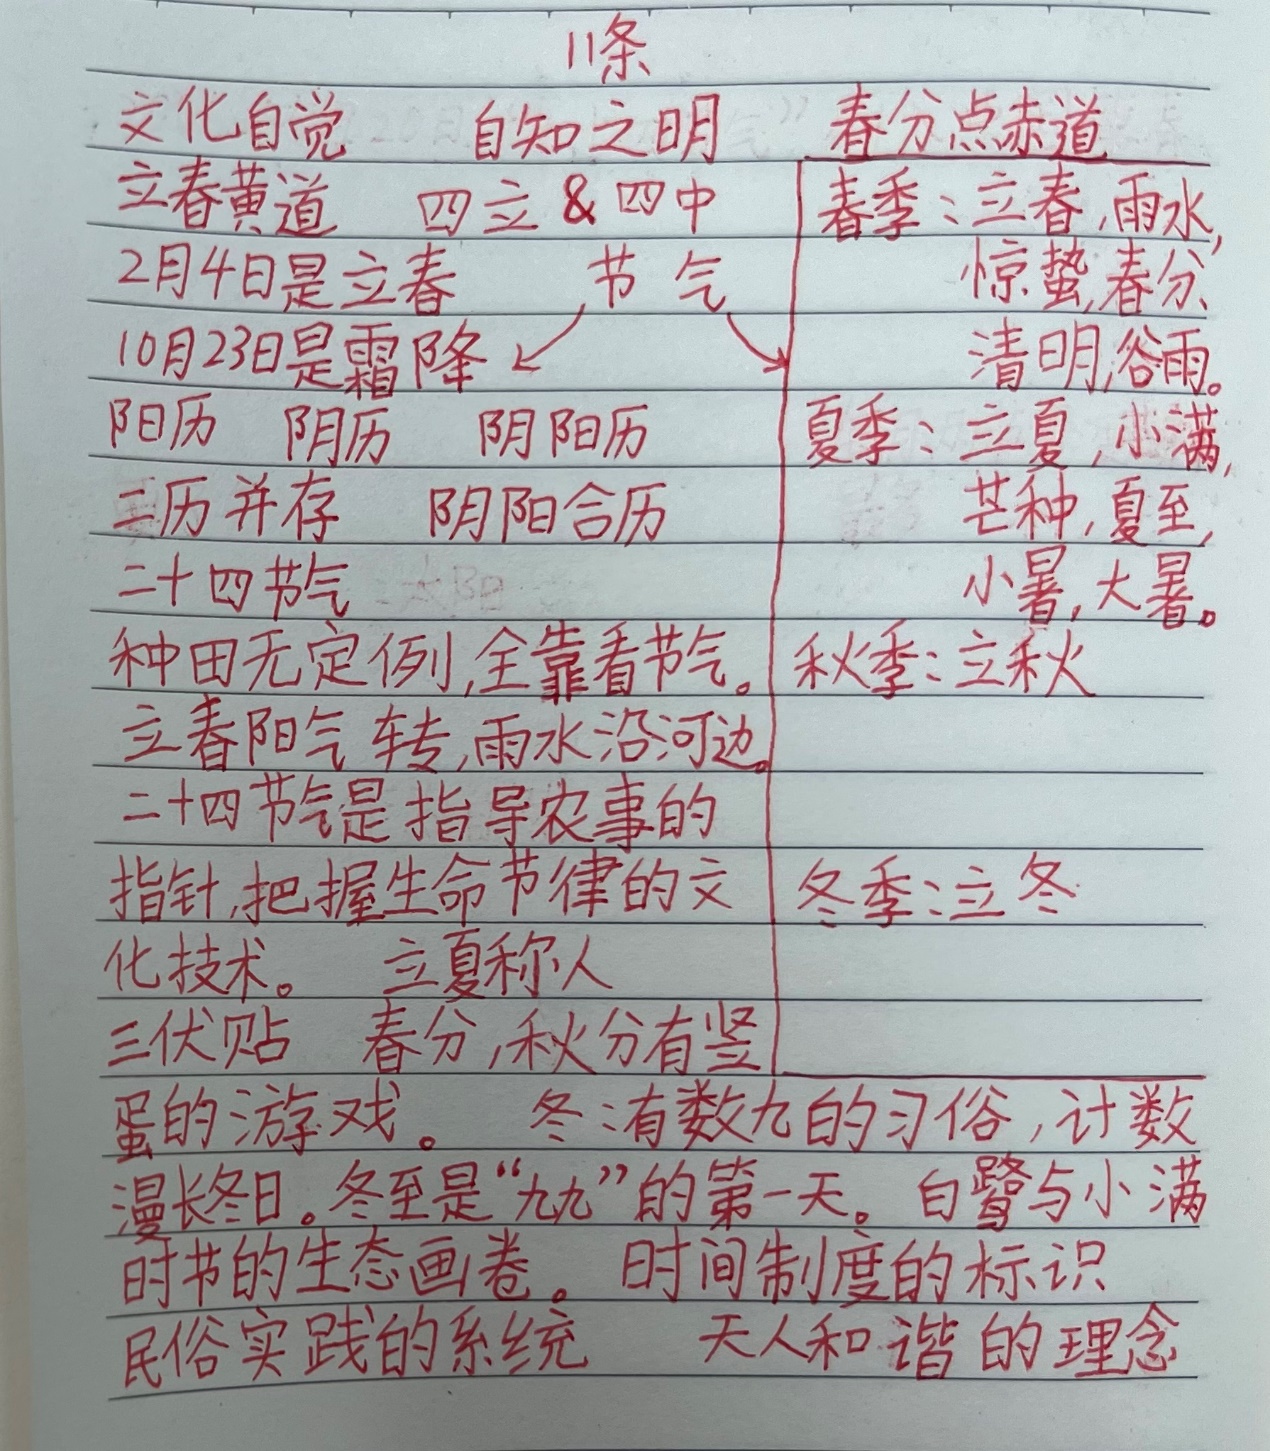 11条
文化自觉 自知之明 春分点赤道
立春黄道 四立 & 四中
2月4日是立春 节气
10月23日是霜降
阳历 阴历 阴阳历
二历并存 阴阳合历
二十四节气
种田无定例,全靠看节气。
立春阳气转,雨水沿河边。
二十四节气是指导农事的
指针,把握生命节律的文
化技术。 立夏称人
三伏贴 春分,秋分有竖
春季:立春,雨水,
惊蛰,春分,
清明,谷雨。
夏季:立夏,小满,
芒种,夏至,
小暑,大暑。
秋季:立秋
冬季:立冬
蛋的游戏。 冬:有数九的习俗,计数
漫长冬日。冬至是“九九”的第一天。 白鹭与小满
时节的生态画卷。 时间制度的标识
民俗实践的系统 天人和谐的理念